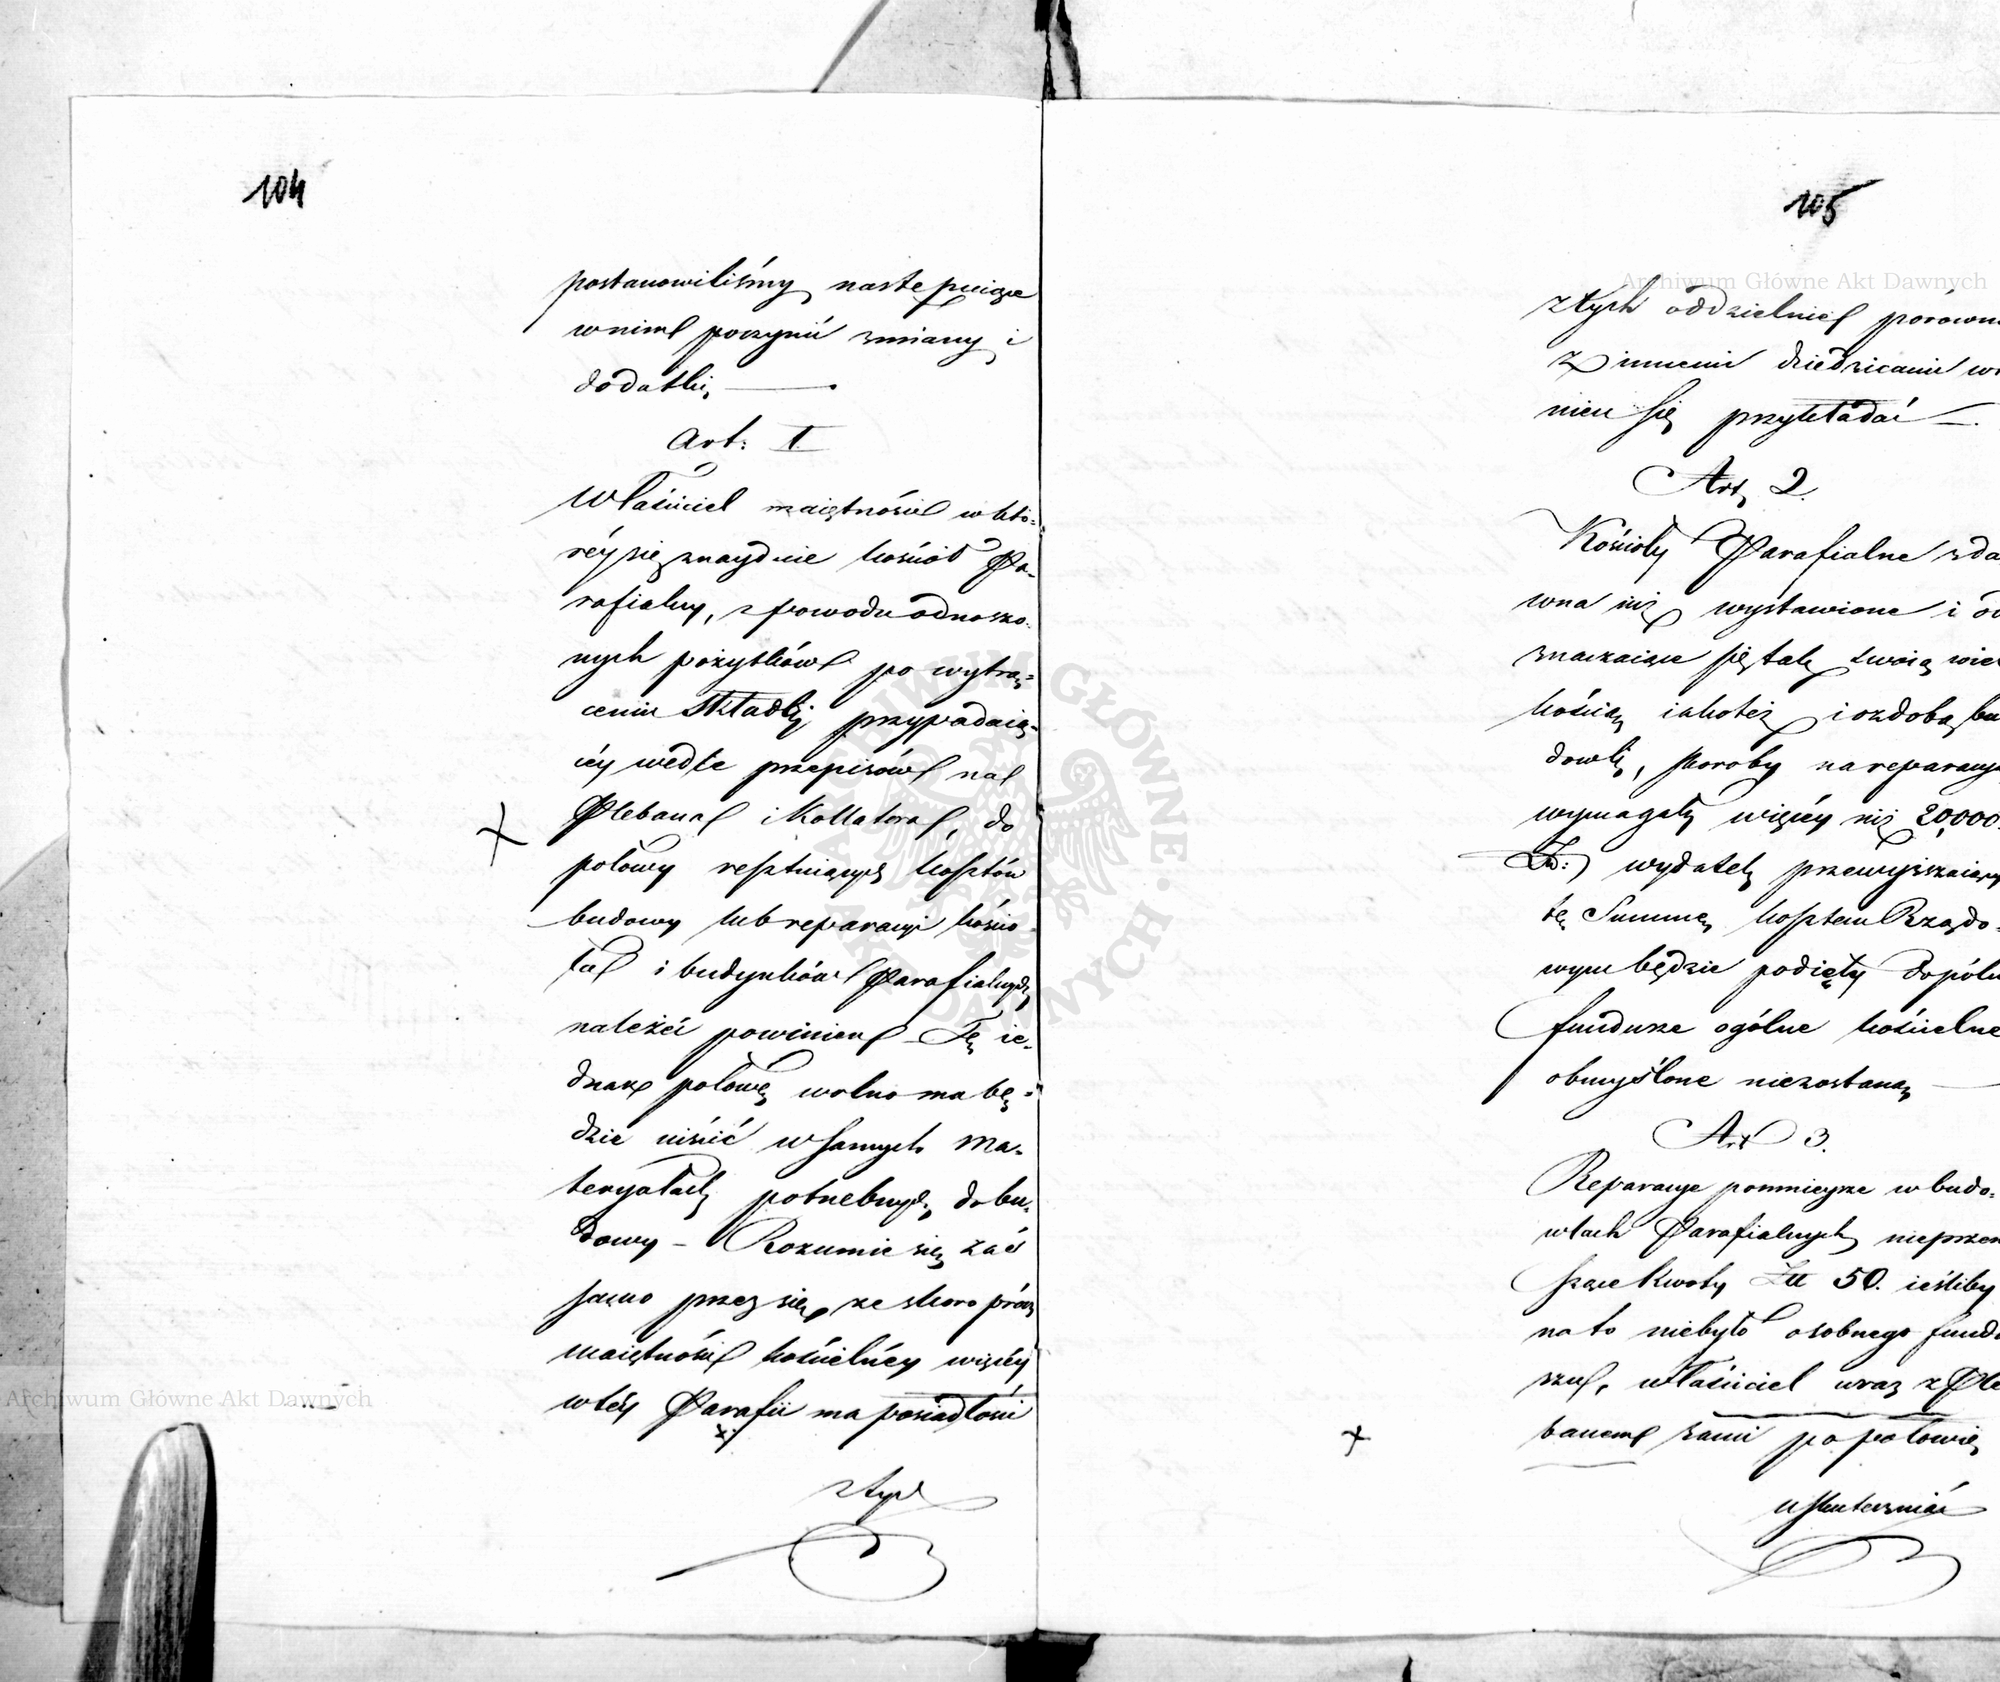 104
postanowiliśmy nastepuiące
w nim poczynić zmiany i
dodatki,
Art: I
Właściciel maiętności w któ-
réy się znayduie kościół Pa-
rafialny, z powodu odnoszo-
nych pożytków po wytrą-
ceniu Składki przypadaią-
céy wedle przepisów na
Plebana i Kollatora, do
połowy resztuiących kosztów
budowy lub reparacyi kościo-
ła i budynków Parafialnych
należéć powinien Tę ie-
dnak połowę wolno mu bę-
dzie uiścić w samych ma-
teryałach potrzebnych do bu-
dowy - Rozumie się zaś
samo przez się, że skoro prócz
maiętności kościelnéy więcéy
w téy Parafii ma posiadłości
x
ztych
105
Archiwum Główne Akt Dawnych
z tych oddzielnie porówn
z innemi dziedzicami w
nien się przykładać
Art. 2.
Kościoły Parafialne zda
wna iuż wystawione i od
znaczaiące się tak swoią wiel
kością iakoteż i ozdobą bu
dowli, skoroby na reparacyą
wymagały więcéy niż 20,000.
Zł:) wydatek przewyższaiący
tę Summę kosztem Rządo-
wym będzie podięty dopóki
fundusze ogólne kościelne
obmyślone niezostaną
Art 3.
Reparacye pomnieysze w budo-
wlach Parafialnych nieprzen
szące kwoty Zł 50. ieśliby
na to niebyło osobnego fundu
szu, właściciel wraz z Ple
banem sami po połowie
uskuteczniać
x
x
Archiwum Główne Akt Dawnych
ARCHIWUM GŁÓWNE AKT DAWNYCH